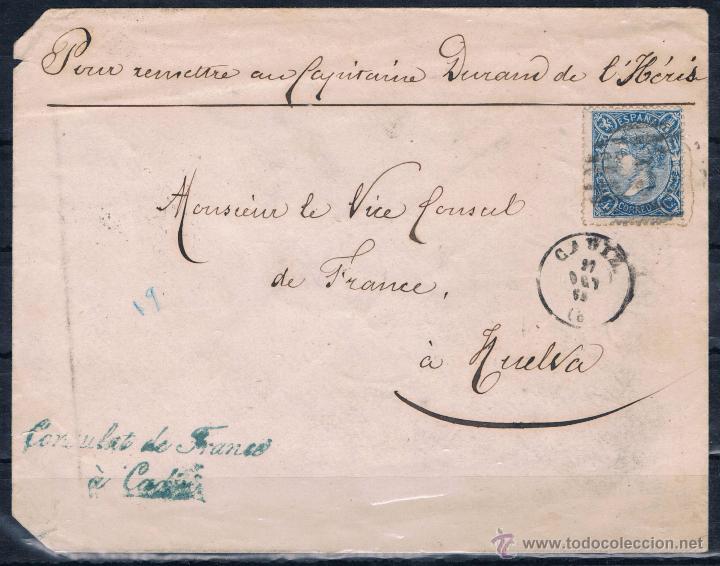 Pour remettre au Capitaine Durand de l'Héris
ESPAÑA
CORREOS
Monsieur le Vice Consul
de France,
à Huelva
CADIZ
19
Consulat de France
à Cadix
todocoleccion
© www.todocoleccion.net